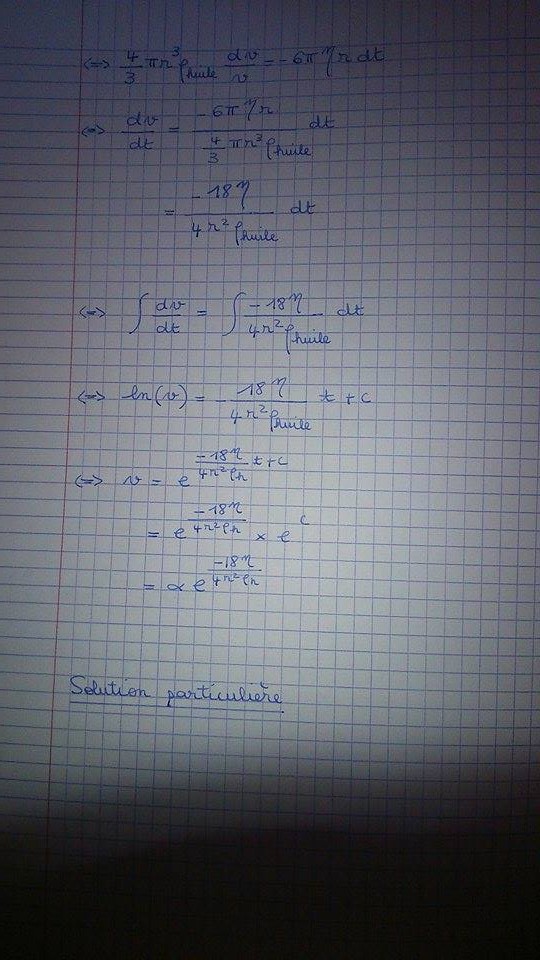 ⇔ 4/3 πr³ ρhuile dv/v = -6πηr dt
⇔ dv/dt = -6πηr / (4/3 πr³ ρhuile) dt
= -18η / (4r² ρhuile) dt
⇔ ∫ dv/dt = ∫ -18η / (4r² ρhuile) dt
⇔ ln(v) = - 18η / (4r² ρhuile) t + c
⇔ v = e^(-18η/(4r²ρh) t + c)
= e^(-18η/(4r²ρh)) × e^c
= α e^(-18η/(4r²ρh))
Solution particulière